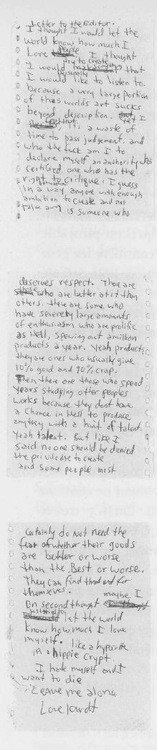 Letter to the Editor.
I thought I would let the
world know how much I
Love I thought
try to create
I would that
personally
I would like to listen to.
because a very large portion
of this worlds art sucks
beyond description. I
it, a waste of
time to pass judgement, and
who the fuck am I to
declare myself an authority
certified, one who has the
right critique. I guess
in a way anyone with enough
ambition to create and not
is someone who
deserves respect. There are
who are better at it than
others. there are some who
have severely large amounts
of enthusiasm who are prolific
as Hell, spewing out a million
products a year. Yeah products
theyre ones who usually give
10% good and 90% crap.
Then there are those who spend
years studying other peoples
works because they dont have
a chance in Hell to produce
anything with a hint of talent.
Yeah talent. But like I
said no one should be denied
the priviledge to create
and some people most
Certainly do not need the
fear of whether their goods
are better or worse
than the Best or worse.
They can find that out for
themselves. maybe I
On second thought
let the world
know how much I love
myself. like a hypocrite
in a hippie crypt
I hate myself and I
want to die
Leave me alone.
Love Kurdt